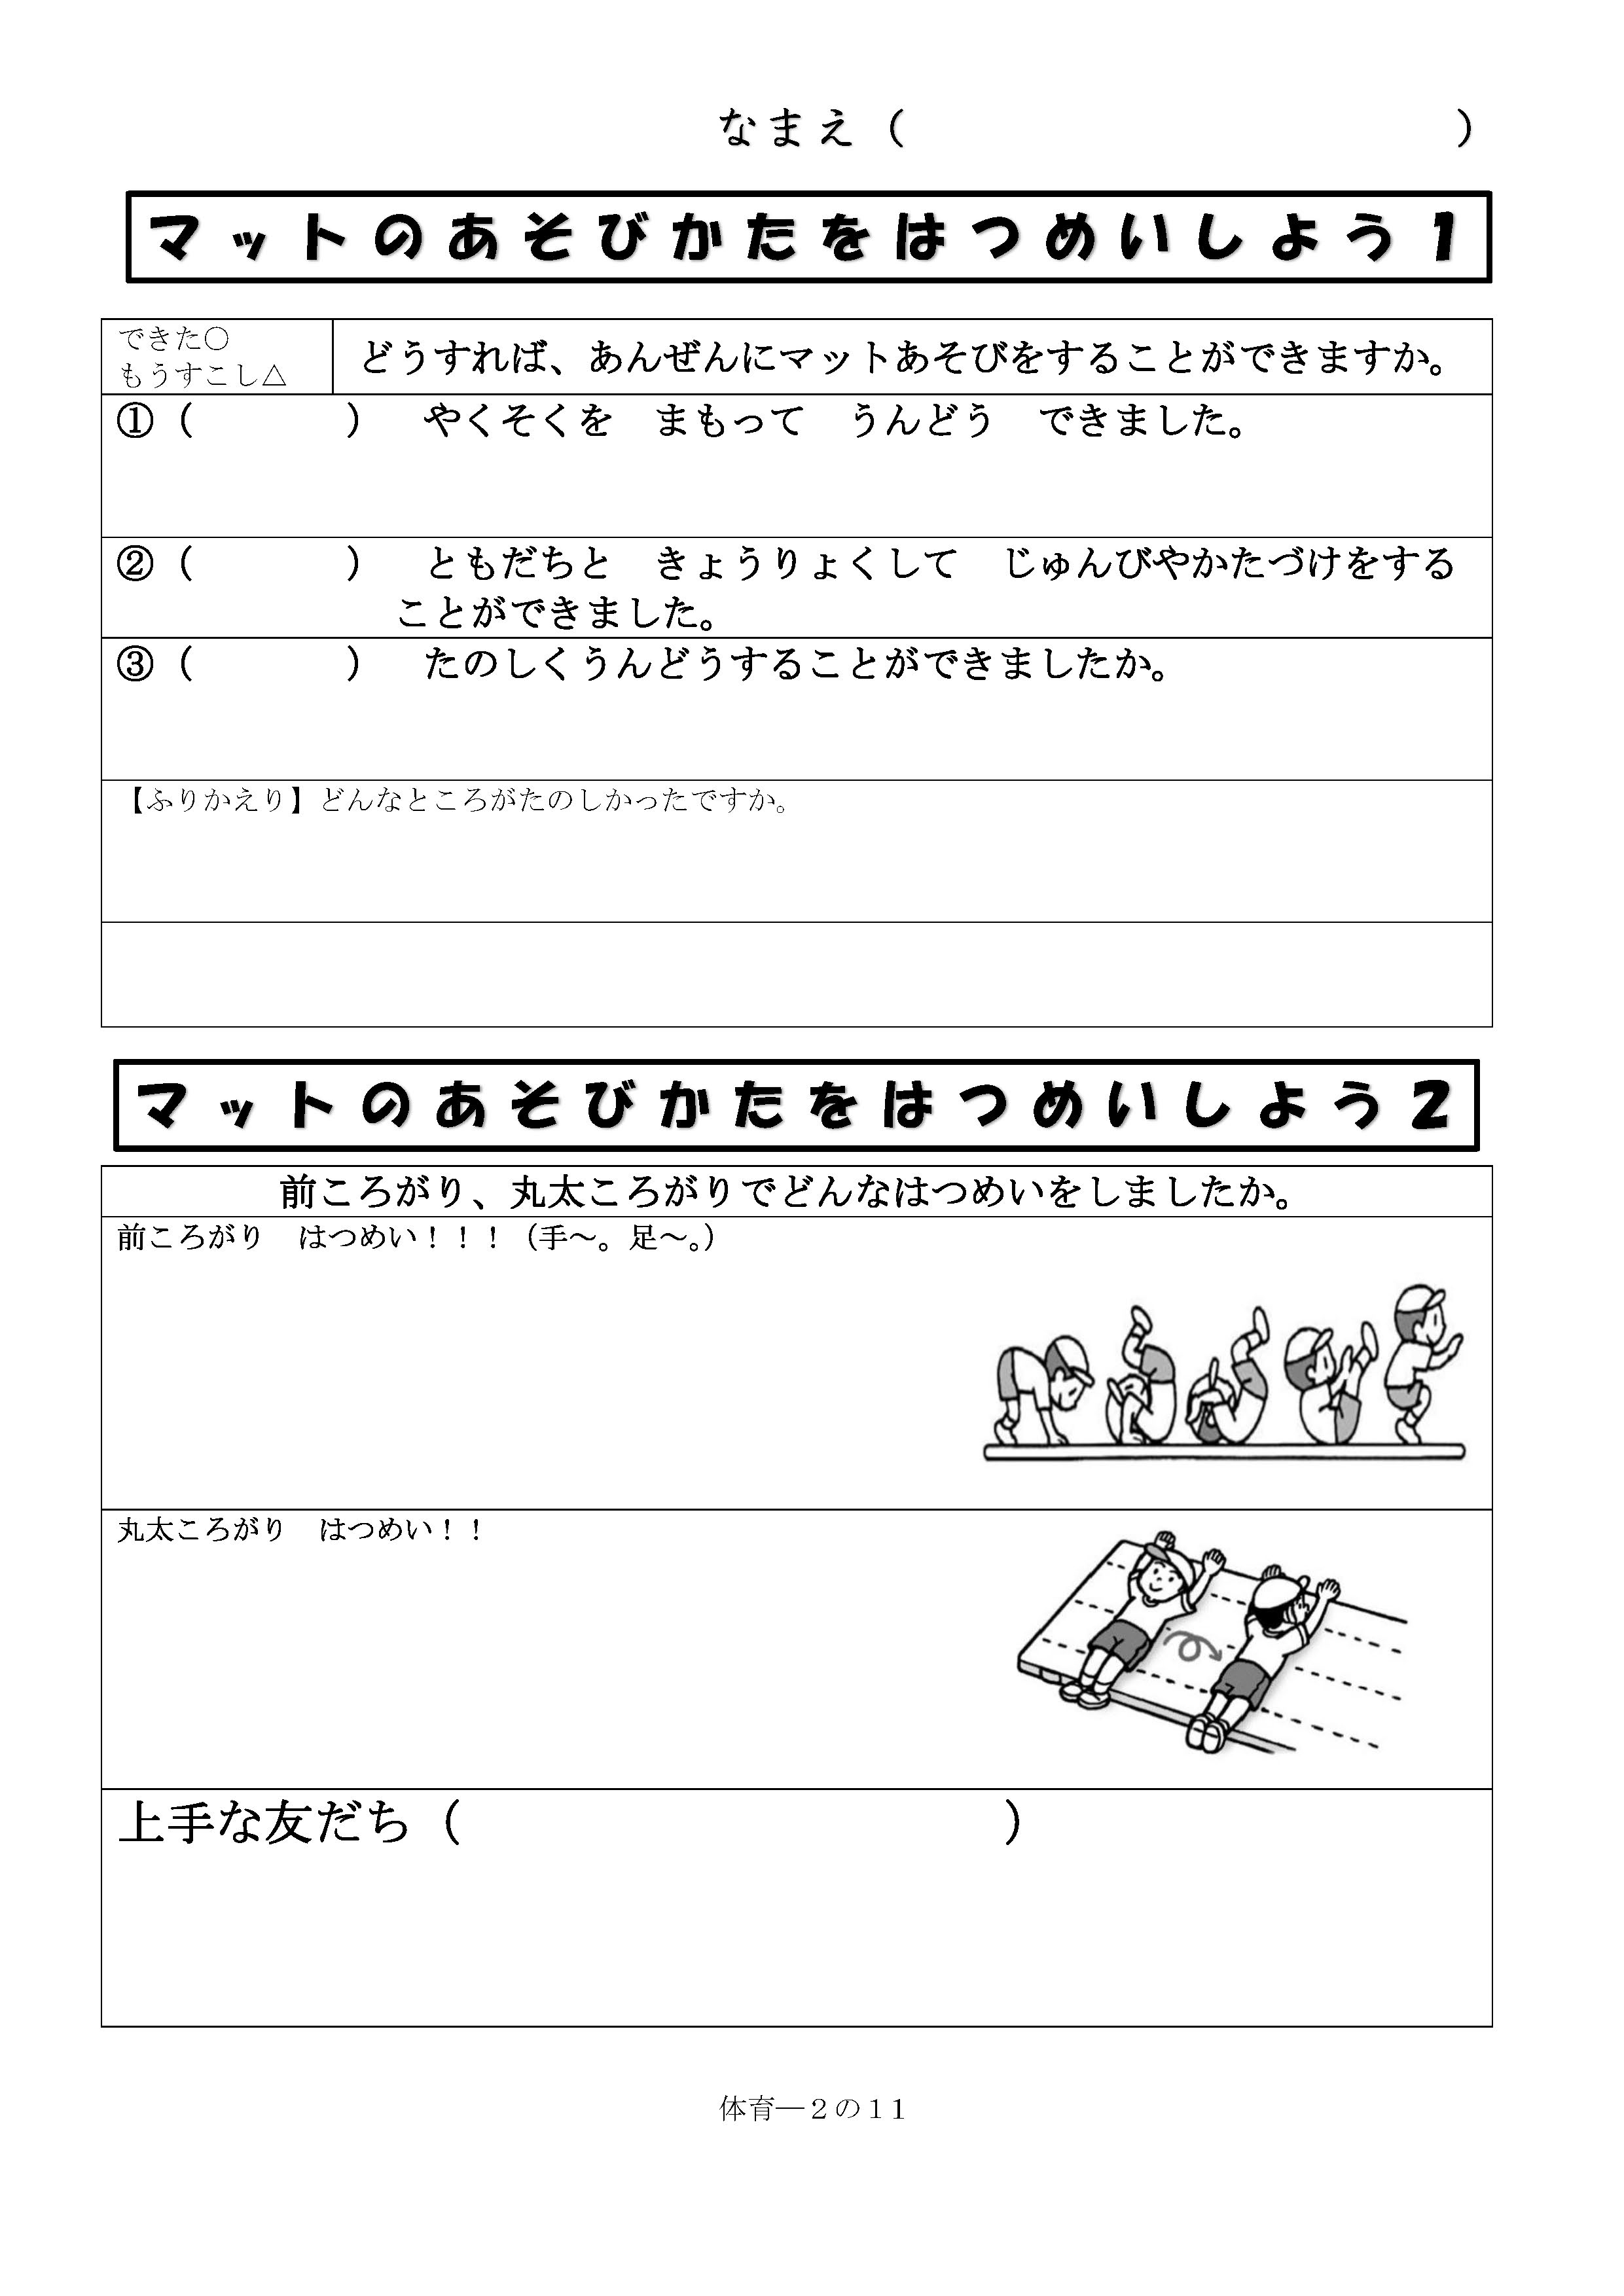 なまえ（　　　　　　　　　　　）
マットのあそびかたをはつめいしよう１
できた○
もうすこし△
どうすれば、あんぜんにマットあそびをすることができますか。
①（　　　）　やくそくを　まもって　うんどう　できました。
②（　　　）　ともだちと　きょうりょくして　じゅんびやかたづけをする
ことができました。
③（　　　）　たのしくうんどうすることができましたか。
【ふりかえり】どんなところがたのしかったですか。
マットのあそびかたをはつめいしよう２
前ころがり、丸太ころがりでどんなはつめいをしましたか。
前ころがり　はつめい！！！（手～。足～。）
丸太ころがり　はつめい！！
上手な友だち（　　　　　　　　　　　）
体育―２の１１